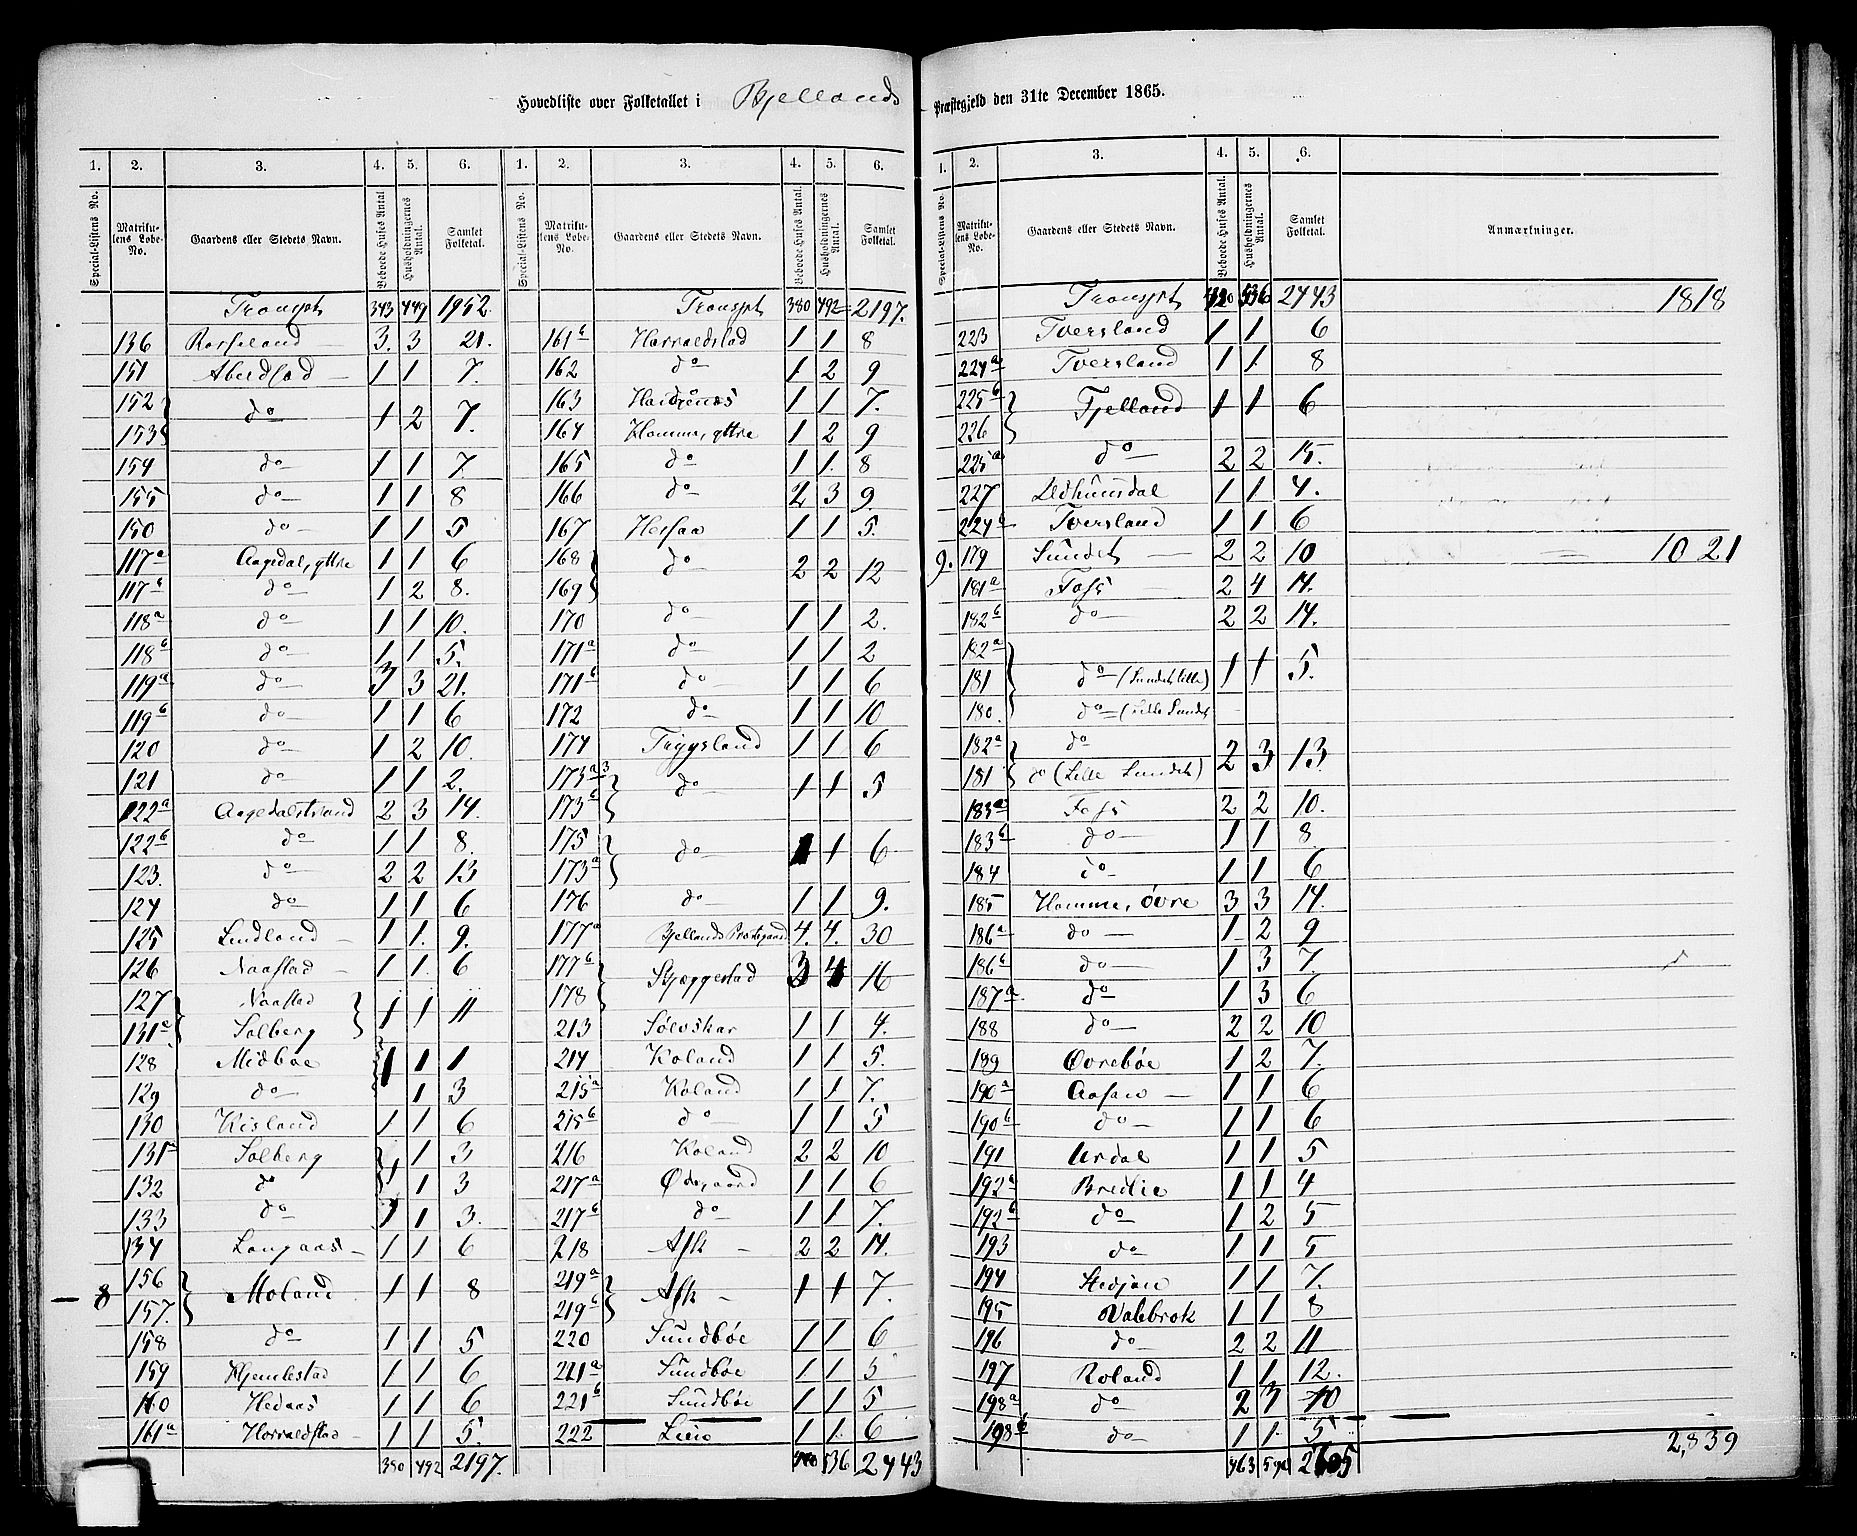 Hovedliste over Folketallet i Bjellands Præstegjeld den 31te December 1865.
1. 2. 3. 4. 5. 6.
Special-Listens No. Matrikulens Løbe-No. Gaardens eller Stedets Navn. Beboede Huses Antal Husholdningernes Antal. Samlet Folketal.
Transpt 343 449 1952
136 Rosseland 3. 3 21.
151 Aberdsad 1 1 7.
152 153 do 1 2 7.
154 do 1 1 7.
155 do 1 1 8
150 do 1 1 5
117a Aagedal, yttre 1 1 6
117b do 1 2 8.
118a do 1 1 10.
118b do 1 1 5.
119a do 3 3 21.
119b do 1 1 6
120 do 1 2 10.
121 do 1 1 2.
122a Aagedalstrand 2 3 14.
122b do 1 1 8.
123. do 2 2 13
124 do 1 1 6
125 Lindland 1 1. 9.
126 Naastad 1 1. 6
127 Naastad
131a Solberg 1 1 11
128 Midbøe 1 1 1
129 do 1 3
130 Kisland 1 1 6
131 Solberg 1 1 3
132 do 1 3
133 do 1 1 3.
134 Langaas 1 1 6
8 156 157. Moland 1 1 8
158 do 1 1 5
159 Hjemlestad 1 1 6
160 Hedaas 1 1 6
161a Harraldstad 1 1 5.
380 492 2197.
1. 2. 3. 4. 5. 6.
Special-Listens No. Matrikulens Løbe-No. Gaardens eller Stedets Navn. Beboede Huses Antal. Husholdningernes Antal. Samlet Folketal.
Transpt 380 492 2197.
161b Harraldstad 1 1 8
162 do 1 2 9
163 1 1 7.
164 Homme, yttre 1 2 9
165 do 1 1. 8
166 do 2 3 9.
167 Hessaa 1 1 5.
168 169 do 2 2 12
170 do 1 1 2.
171a do 1 1 2
171b do 1 1 6
172 do 1 1 10
174 Tryggsland 1 1 6
173a3 173b do 1 1 5
175 173a do 1 1 6
176 do 1 1 9.
177a Bjellands Præstegaard 4. 4. 30
177b 178 Skjæggestad 3 4 16
213 Sølvskar 1 1 4.
214 Koland 1 1 5.
215a Koland 1 1 7.
215b do 1 1 5
216 Koland 2 2 10
217a Ødegaard 1 1 6
217b do 1 1 7.
218 Ask 2 2 14.
219a 219b Ask 1 1 7.
220 Sundbøe 1 1 6
221a Sundbøe 1 1 5
221b Sundbøe 1 1 5
222 Lien 1 1. 6
420 536 2443
1. 2. 3. 4. 5. 6.
Special-Listens No. Matrikulens Løbe-No. Gaardens eller Stedets Navn. Beboede Huses Antal. Husholdningernes Antal. Samlet Folketal. Anmærkninger.
Transpt 420 536 2443 1818
223 Tversland 1 1 6
224a Tversland 1 1. 8
225b 226 Fjelland 1 1 6
225a do 2 2 15.
227 Udhunsdal 1 1 4.
224b Tversland 1 1 6
9. 179 Sundet 2 2 10 1021
181a Foss 2 4 14.
182b do 2 2 14.
182a
181 do (Sundet lille) 1 1 5.
180. do (Lille Sundet
182a do 2 3 13.
181 do (Lille Sundet)
183a Foss 2 2 10.
183b do 1 1 8.
184 do 1 1 6
185 Homme, øvre 3 3 14.
186a do 1 2 9
186b do 1 3 7.
187a. do 1 3 6
188 do 2 2 10
189 Øvrebøe 1 2 7.
190a Aasen 1 1 6
190b do 1 1 6
191 Urdal 1 1 5
192a Bredlie 1 1 4
192b do 1 2 5
193 do 1 1 5
194 Stedjan 1 1 7.
195 Valebrok 1 1 8
196 do 2 2 11
197 Roland 1 1 12.
198a do 2 3 10
198b do 1 1. 5
463 590 2605 2,839